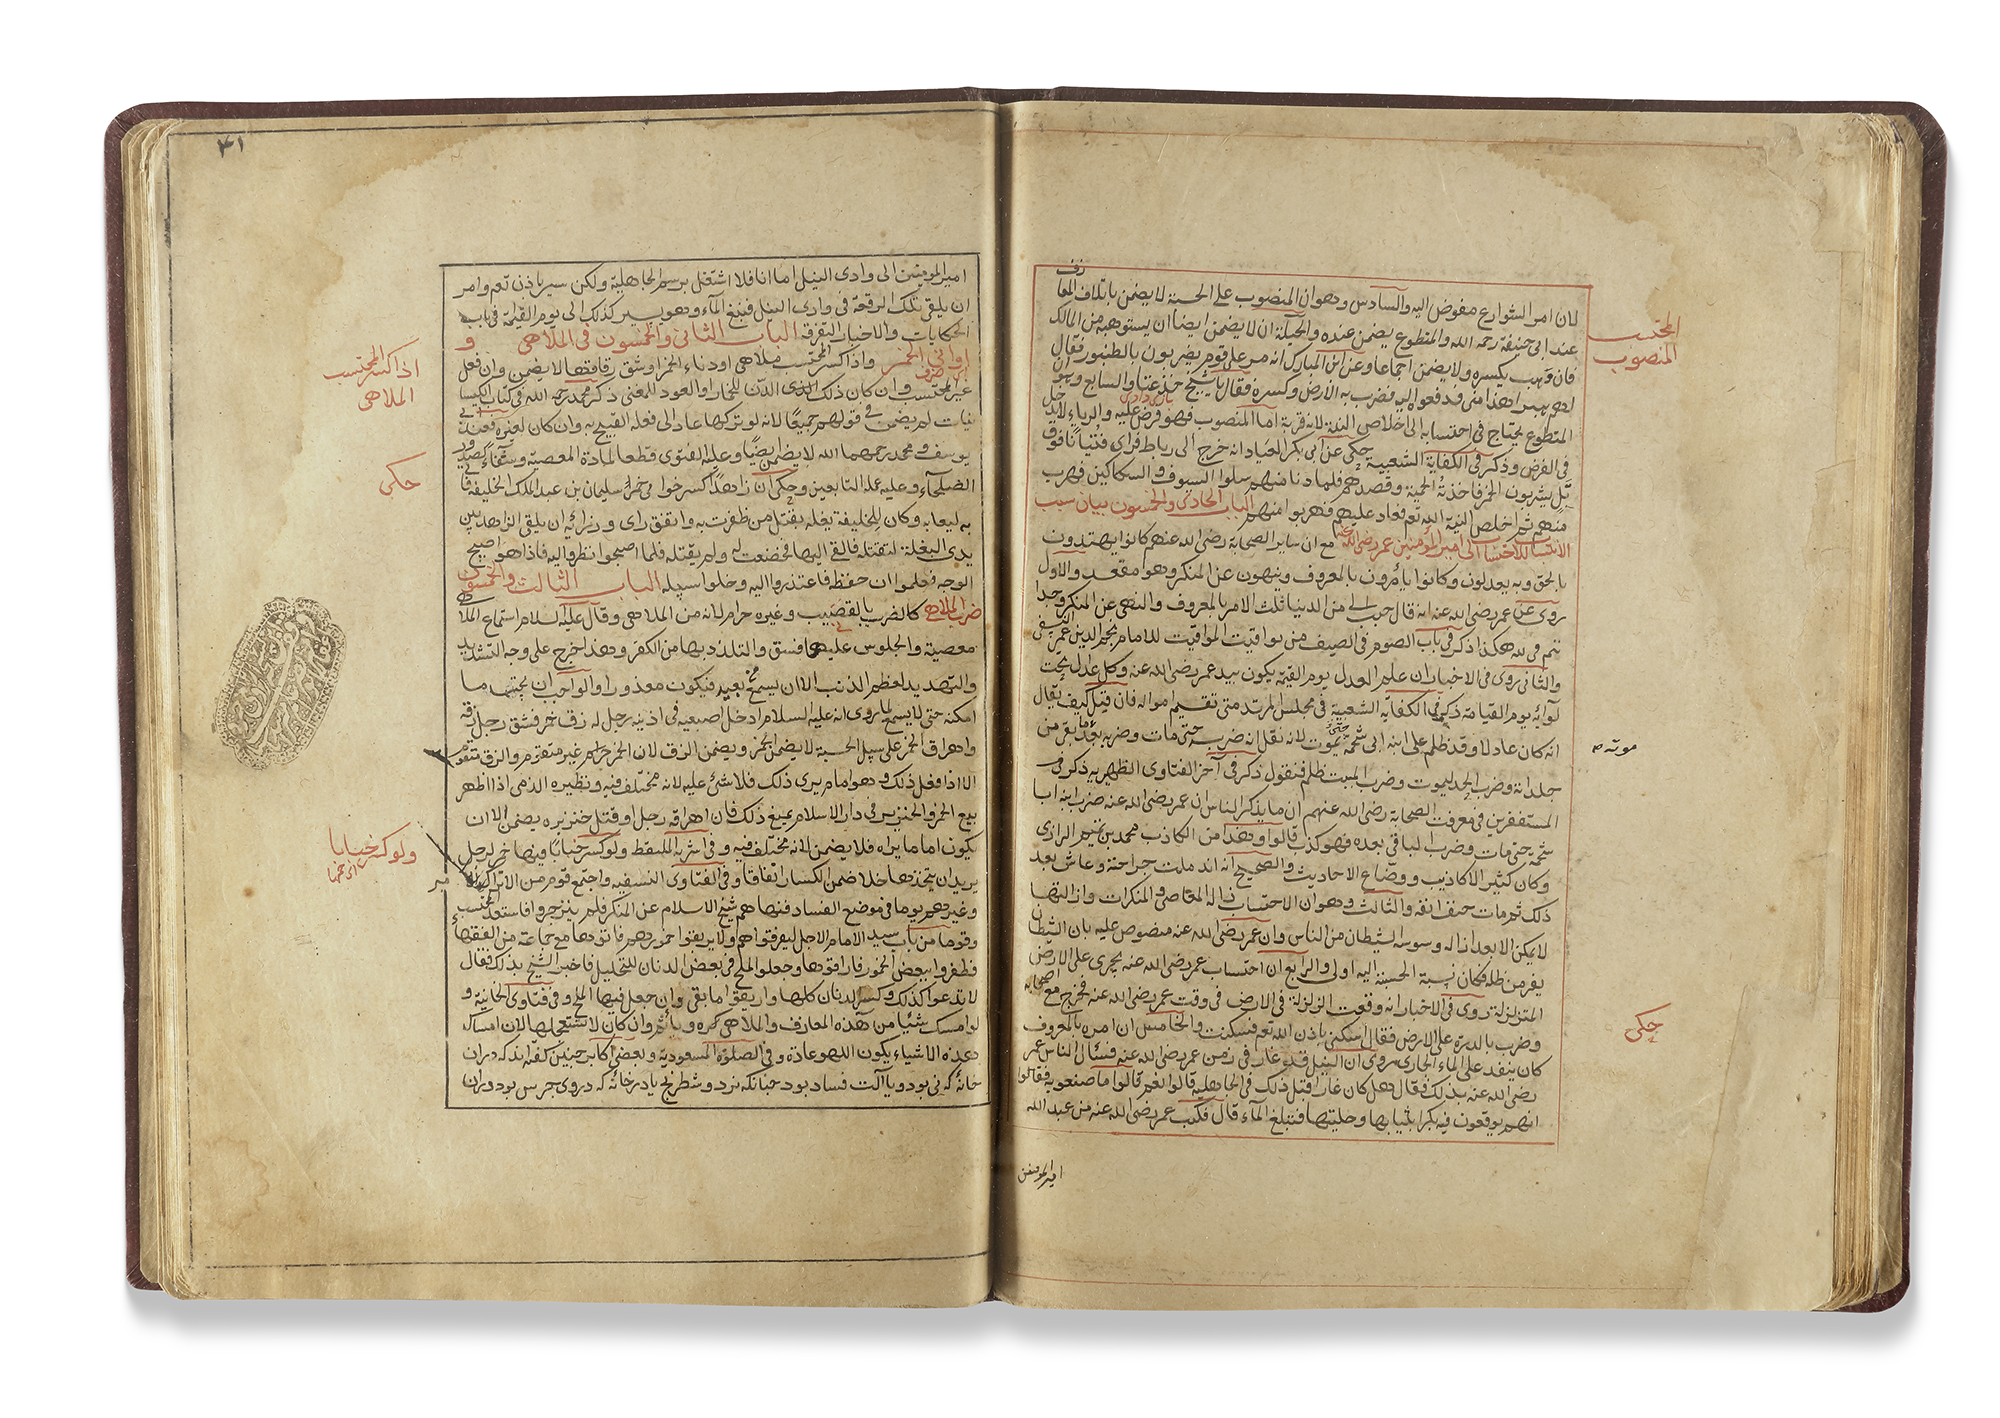 لان امر الشوارع مفوض اليه والسادس وهو ان المنصوب على الحسبة لا يضمن باتلاف المعازف
عند ابى حنيفة رحمه الله والمتطوع يضمن عنده والحيلة ان لا يضمن ايضا ان يستوهبه من المالك
فان وهب يكسره ولا يضمن اجماعا وعن ابن المبارك انه مر على قوم يضربون بالطنبور فقال
لهم هبوا هذا منى فدفعوا اليه فضرب به الارض وكسره فقال يا شيخ خدعتنا والسابع وهو ان
المتطوع يحتاج فى احتسابه الى اخلاص النية لانه قربة اما المنصوب فهو فرض عليه والرياء لا يدخل
فى الفرض وذكر فى الكفاية الشعبية حكى عن ابى بكر العياد انه خرج الى رباط فراى فتيانا فوق
تل يشربون الخمر فاخذته الحمية وقصدهم فلما دنا منهم سلوا السيوف والسكاكين فهرب
منهم ثم اخلص النية لله تعم فعاد عليهم فهربوا منهم الباب الحادى والخمسون بيان سبب
الاحتساب الى امير المؤمنين عمر رضى الله عنه مع ان ساير الصحابة رضى الله عنهم كانوا يهتدون
بالحق وبه يعدلون وكانوا يامرون بالمعروف وينهون عن المنكر وهو مقعد والاول
روى عن عمر رضى الله عنه انه قال حبب الى من الدنيا ثلث الامر بالمعروف والنهى عن المنكر وحد
فى لله هكذا ذكر فى باب الصوم فى الصيف من يواقيت المواقيت للامام نجم الدين عمر النسفى
والثانى روى فى الاخبار ان علم العدل يوم القيمة يكون بيد عمر رضى الله عنه وكل عادل تحت
لوائه يوم القيامة ذكر فى الكفاية الشعبية فى مجلس المرتد متى تقسيم امواله فان قيل كيف يقال
انه كان عادلا وقد ظلم على ابنه ابى شحمة حتى يموت لانه نقل انه ضربه حتى مات وضربه بعد ما بقى من
جلداته وضرب الحد ليموت وضرب الميت ظلم فنقول ذكر فى آخر الفتاوى الظهيرية ذكر فى
المستغفرين فى معرفت الصحابة رضى الله عنهم ان ما يذكر الناس ان عمر رضى الله عنه ضرب ابنه ابا
شحمة حتى مات وضرب الباقى بعده فهو كذب قالوا وهذا من الكاذب محمد بن تميم الرازى
وكان كثير الاكاذيب ووضاع الاحاديث والصحيح انه اندملت جراحته وعاش بعد
ذلك ثم مات حتف انفه والثالث وهو ان الاحتساب ازالة المعاصى والمنكرات وازالتها
لا يمكن الا بعد ازالة وسوسة الشيطان من الناس وان عمر رضى الله عنه منصوص عليه بان الشيطان
يفر من ظله فكان نسبة الحسبة اليه اولى والرابع ان احتساب عمر رضى الله عنه يجرى على الارض
المتزلزلة روى فى الاخبار انه وقعت الزلزلة فى الارض فى وقت عمر رضى الله عنه فخرج مع اصحابه
وضرب بالدرة على الارض فقال اسكنى باذن الله تعم فسكنت والخامس ان امره بالمعروف
كان ينفذ على الماء الجارى روى ان النيل قد غار فى زمن عمر رضى الله عنه فسئال الناس عمر
رضى الله عنه بذلك فقال وهل كان غار قبل ذلك فى الجاهلية قالوا نعم قالوا ما صنعو به فقالوا
انهم يوقعون فيه بكرا بثيابها وحليتها فتبلغ الماء قال فكتب عمر رضى الله عنه من عبد الله
امير المومنين
المحتسب
المنصوب
موته
حكى
٤١
امير المومنين الى وادى النيل اما انا فلا اشتغل برسم الجاهلية ولكن سير باذن تعم وامر
ان يلقى تلك الرقعة فى وادى النيل فنبغ الماء وهو يسير كذلك الى يوم القيامة فى باب
الحكايات والاخبار المتفرقة الباب الثانى والخمسون فى الملاهى و
اوانى الخمر واذا كسر المحتسب ملاهى او دناء الخمر او شق زقاقها لا يضمن وان فعل
غير المحتسب وان كان ذلك الدن للخمار او العود للمغنى ذكر محمد رحمه الله فى كتاب الكيسا
نيات لم يضمن فى قولهم جميعا لانه لو تركها عاد الى فعله القبيح به وان كان لغيره فعند ابى
يوسف ومحمد رحمهما الله لا يضمن ايضا وعليه الفتوى قطعا لمادة المعصية
الصلحاء وعليه عمل التابعين وحكى ان زاهدا كسر خوابى خمر سليمان بن عبد الملك الخليفة فاتى
به ليعاقبه وكان للخليفة بغلة يقتل من ظفرت به واتفق راى وزرائه ان يلقى الزاهد بين
يدى البغلة لتقتله فالقى اليها فخضعت له ولم يقتله فلما اصبحوا نظروا اليه فاذا هو اصبح
الوجه فعلموا ان حفظ فاعتذروا اليه وخلوا سبيله الباب الثالث والخمسون
ضرب الملاهى كالضرب بالقضيب وغيره حرام لانه من الملاهى وقال عليه السلام استماع الملاهى
معصية والجلوس عليها فسق والتلذذ بها من الكفر وهذا خرج على وجه التشديد
والتهديد لعظم الذنب الا ان يسمع بعيد فيكون معذورا والواجب ان يجتهد ما
امكنه حتى لا يسمع لما روى انه عليه السلام ادخل اصبعيه فى اذنيه رجل له زق خمر فشق رجل زقه
واهراق الخمر على سبيل الحسبة لا يضمن الخمر ويضمن الزق لان الخمر حرام غير متقوم والزق متقوم
الا اذا فعل ذلك وهو امام يرى ذلك فلا شئ عليه لانه مختلف فيه ونظيره الذمى اذا اظهر
بيع الخمر والخنزير فى دار الاسلام يمنع ذلك فان اهراقه رجل او قتل خنزيره يضمن الا ان
يكون اماما يراه فلا يضمن لانه مختلف فيه وفى اشربة الملتقط ولو كسر خبايا فيها خمر لرجل
يريد ان يتخذها خلا ضمن الكسار اتفاقا وفى الفتاوى النسفيه واجتمع قوم من الاتراك
وغيرهم يوما فى موضع الفساد فنهاهم شيخ الاسلام عن المنكر فلم ينزجروا فاستعد المحتسب
وقوما من باب سيد الامام الاجل ليفرقوا هم ولا يريقوا خمورهم فاتوهما مع جماعة من الفقهاء
فظفروا ببعض الخمور فاراقوها وجعلوا الملح فى بعض الدنان للتخليل فاخبر الشيخ بذلك فقال
لا تدعوا كذلك وكسروا الدنان كلها واريقوا ما بقى وان جعل فيها الملح وفى فتاوى الخانية و
لو امسك شيئا من هذه المعازف والملاهى كره وياثم وان كان لا يستعملها لان امساك
هذه الاشياء يكون اللهو عادة وفى الصلوة المسعودية وبعضى اكابر جنين كفته اند كه دران
خانه كه نى بود ويا آلت فساد بود جنانكه نرد و شطرنج يا در خانه كه دروى جرس بود دران
اذا كسر المحتسب
الملاهى
حكى
ولو كسر خبايا